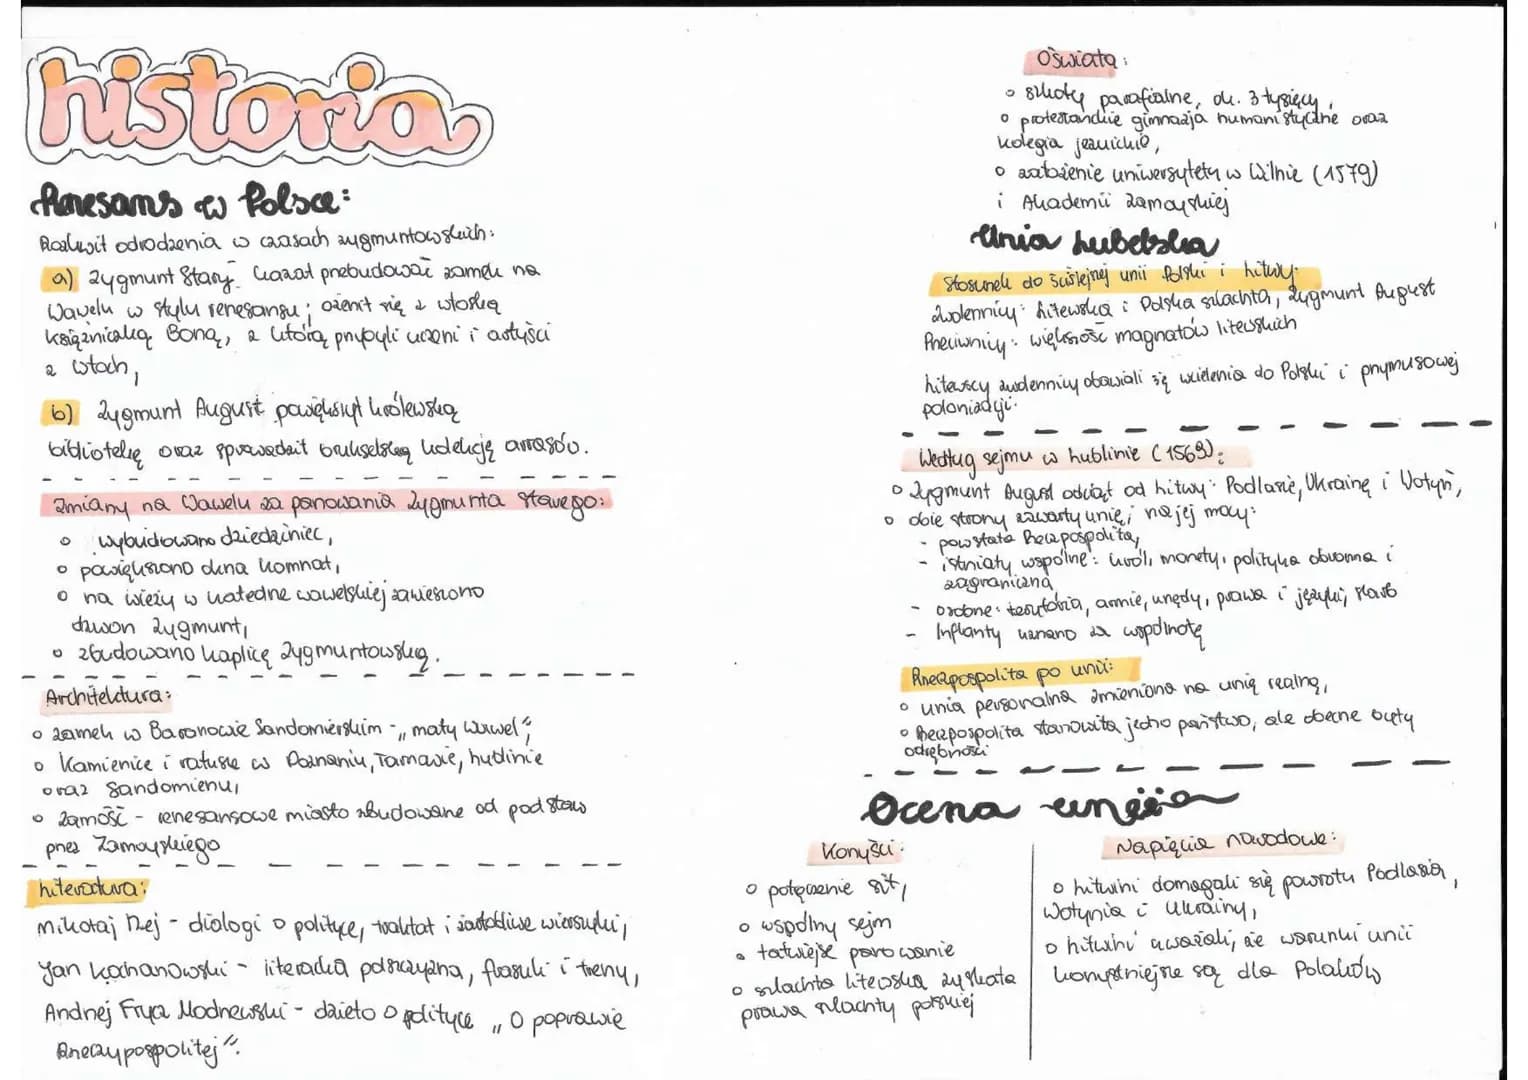 historia
Renesans w Polsce:
Rozkwit odrodzenia w czasach zygmuntowskich:
a) Zygmunt Stary kazał przebudować zamek na
Wawelu w stylu renesansu; ożenił się z włoską
księżniczką Boną, z którą przybyli uczeni i artyści
z Włoch,
b) Zygmunt August powiększył królewską
bibliotekę oraz sprowadził brukselską kolekcję arrasów.
Zmiany na Wawelu za panowania Zygmunta Starego:
o wybudowano dziedziniec,
o powiększono okna komnat,
o na wieży w katedrze wawelskiej zawieszono
dzwon Zygmunt,
o zbudowano kaplicę Zygmuntowską.
Architektura:
o zamek w Baranowie Sandomierskim - „mały Wawel";
o Kamienice i ratusze w Poznaniu, Tarnowie, Lublinie
oraz Sandomierzu,
o Zamość - renesansowe miasto zbudowane od podstaw
przez Zamoyskiego
Literatura:
Mikołaj Rej - dialogi o polityce, traktat i żartobliwe wierszyki,
Jan Kochanowski - literacka polszczyzna, fraszki i treny,
Andrzej Frycz Modrzewski - dzieło o polityce „O poprawie
Rzeczypospolitej".
Oświata:
o szkoły parafialne, ok. 3 tysięcy,
o protestanckie gimnazja humanistyczne oraz
kolegia jezuickie,
o założenie uniwersytetu w Wilnie (1579)
i Akademii Zamoyskiej
Unia Lubelska
Stosunek do ściślejszej unii Polski i Litwy:
Zwolennicy: litewska i Polska szlachta, Zygmunt August
Przeciwnicy: większość magnatów litewskich
Litewscy zwolennicy obawiali się wcielenia do Polski i przymusowej
polonizacji.
Według sejmu w Lublinie (1569):
o Zygmunt August odciął od Litwy: Podlasie, Ukrainę i Wołyń,
o obie strony zawarły unię; na jej mocy:
- powstała Rzeczpospolita,
- istniały wspólne: król, monety, polityka obronna i
zagraniczna
- osobne: terytoria, armie, urzędy, prawa i języki, skarb
- Inflanty uznano za wspólnotę
Rzeczpospolita po unii:
o unia personalna zmieniona na unię realną,
o Rzeczpospolita stanowiła jedno państwo, ale obecne były
odrębności
Ocena unii
Korzyści:
o połączenie sił,
o wspólny sejm
o łatwiejsze panowanie
o szlachta litewska zyskała
prawa szlachty polskiej
Napięcia narodowe:
o Litwini domagali się powrotu Podlasia,
Wołynia i Ukrainy,
o Litwini uważali, że warunki unii
korzystniejsze są dla Polaków